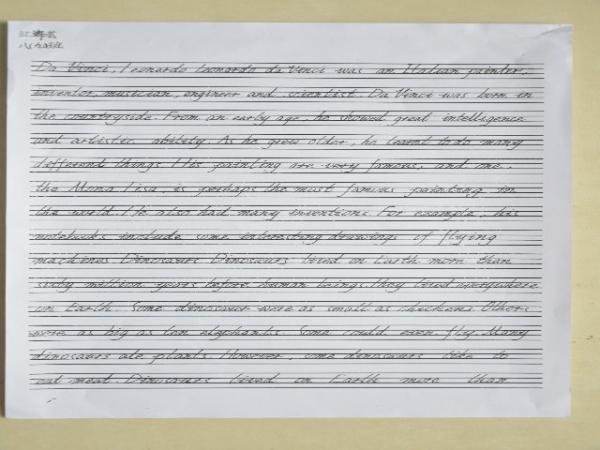 Da Vinci, Leonardo Leonardo da Vinci was an Italian painter,
inventor, musician, engineer and scientist. Da Vinci was born in
the countryside. From an early age, he showed great intelligence
and artistic ability. As he grew older, he learnt to do many
different things. His painting are very famous, and one,
the Mona Lisa, is perhaps the most famous painting in
the world. He also had many inventions. For example, his
notebooks include some interesting drawings of flying
machines. Dinosaurs Dinosaurs lived on Earth more than
sixty million years before human beings. They lived everywhere
on Earth. Some dinosaur were as small as chickens. Others
were as big as ten elephants. Some could even fly. Many
dinosaurs ate plants. However, some dinosaurs like to
eat meat. Dinosaurs lived on Earth more than